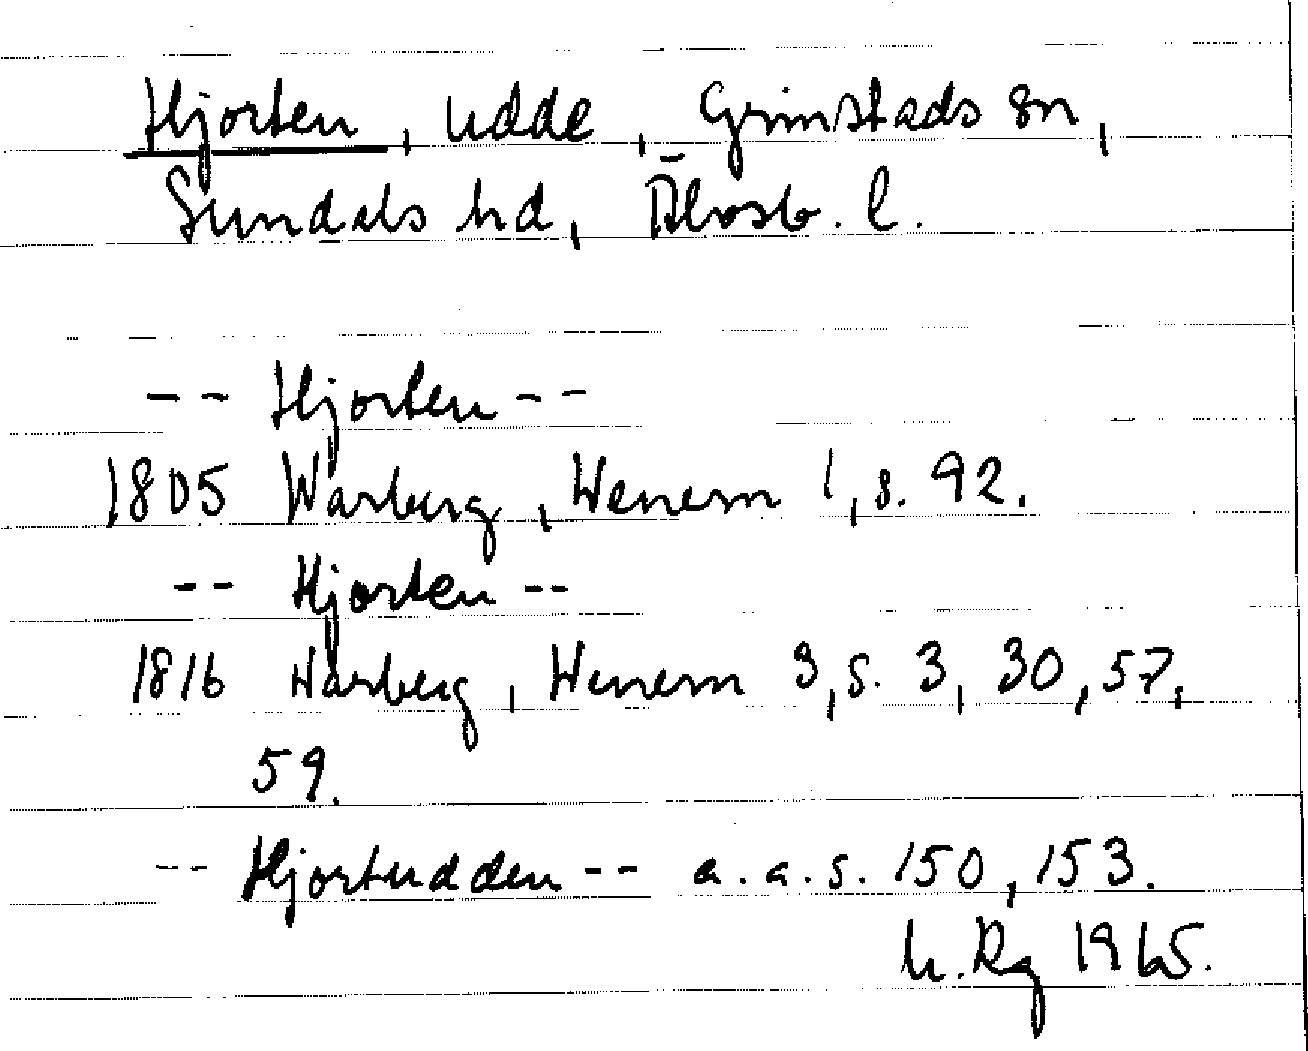 Hjorten, udde, Grinstads sn,
Sundals hd, Älvsb. l.
-- Hjorten --
1805 Warberg, Wenern 1, s. 92.
-- Hjorten --
1816 Warberg, Wenern 3, s. 3, 30, 57,
59.
-- Hjortudden -- a. a. s. 150, 153.
h. Rg 1965.